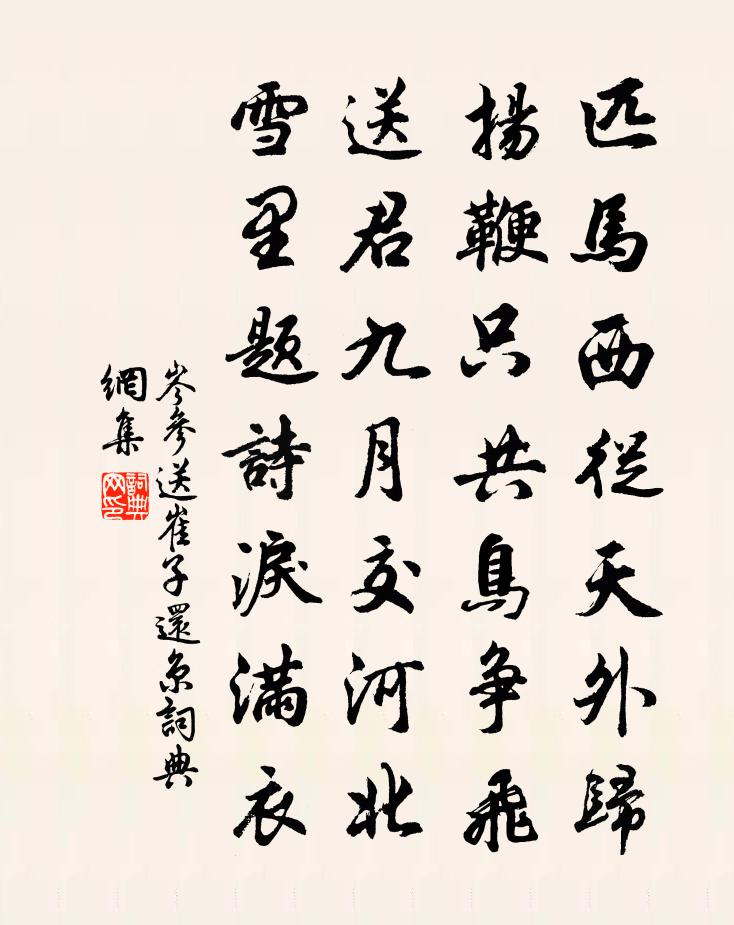 匹馬西從天外歸
揚鞭只共鳥争飛
送君九月交河北
雪里題詩淚满衣
岑參送崔子還京詞典
網集
詞典
网印